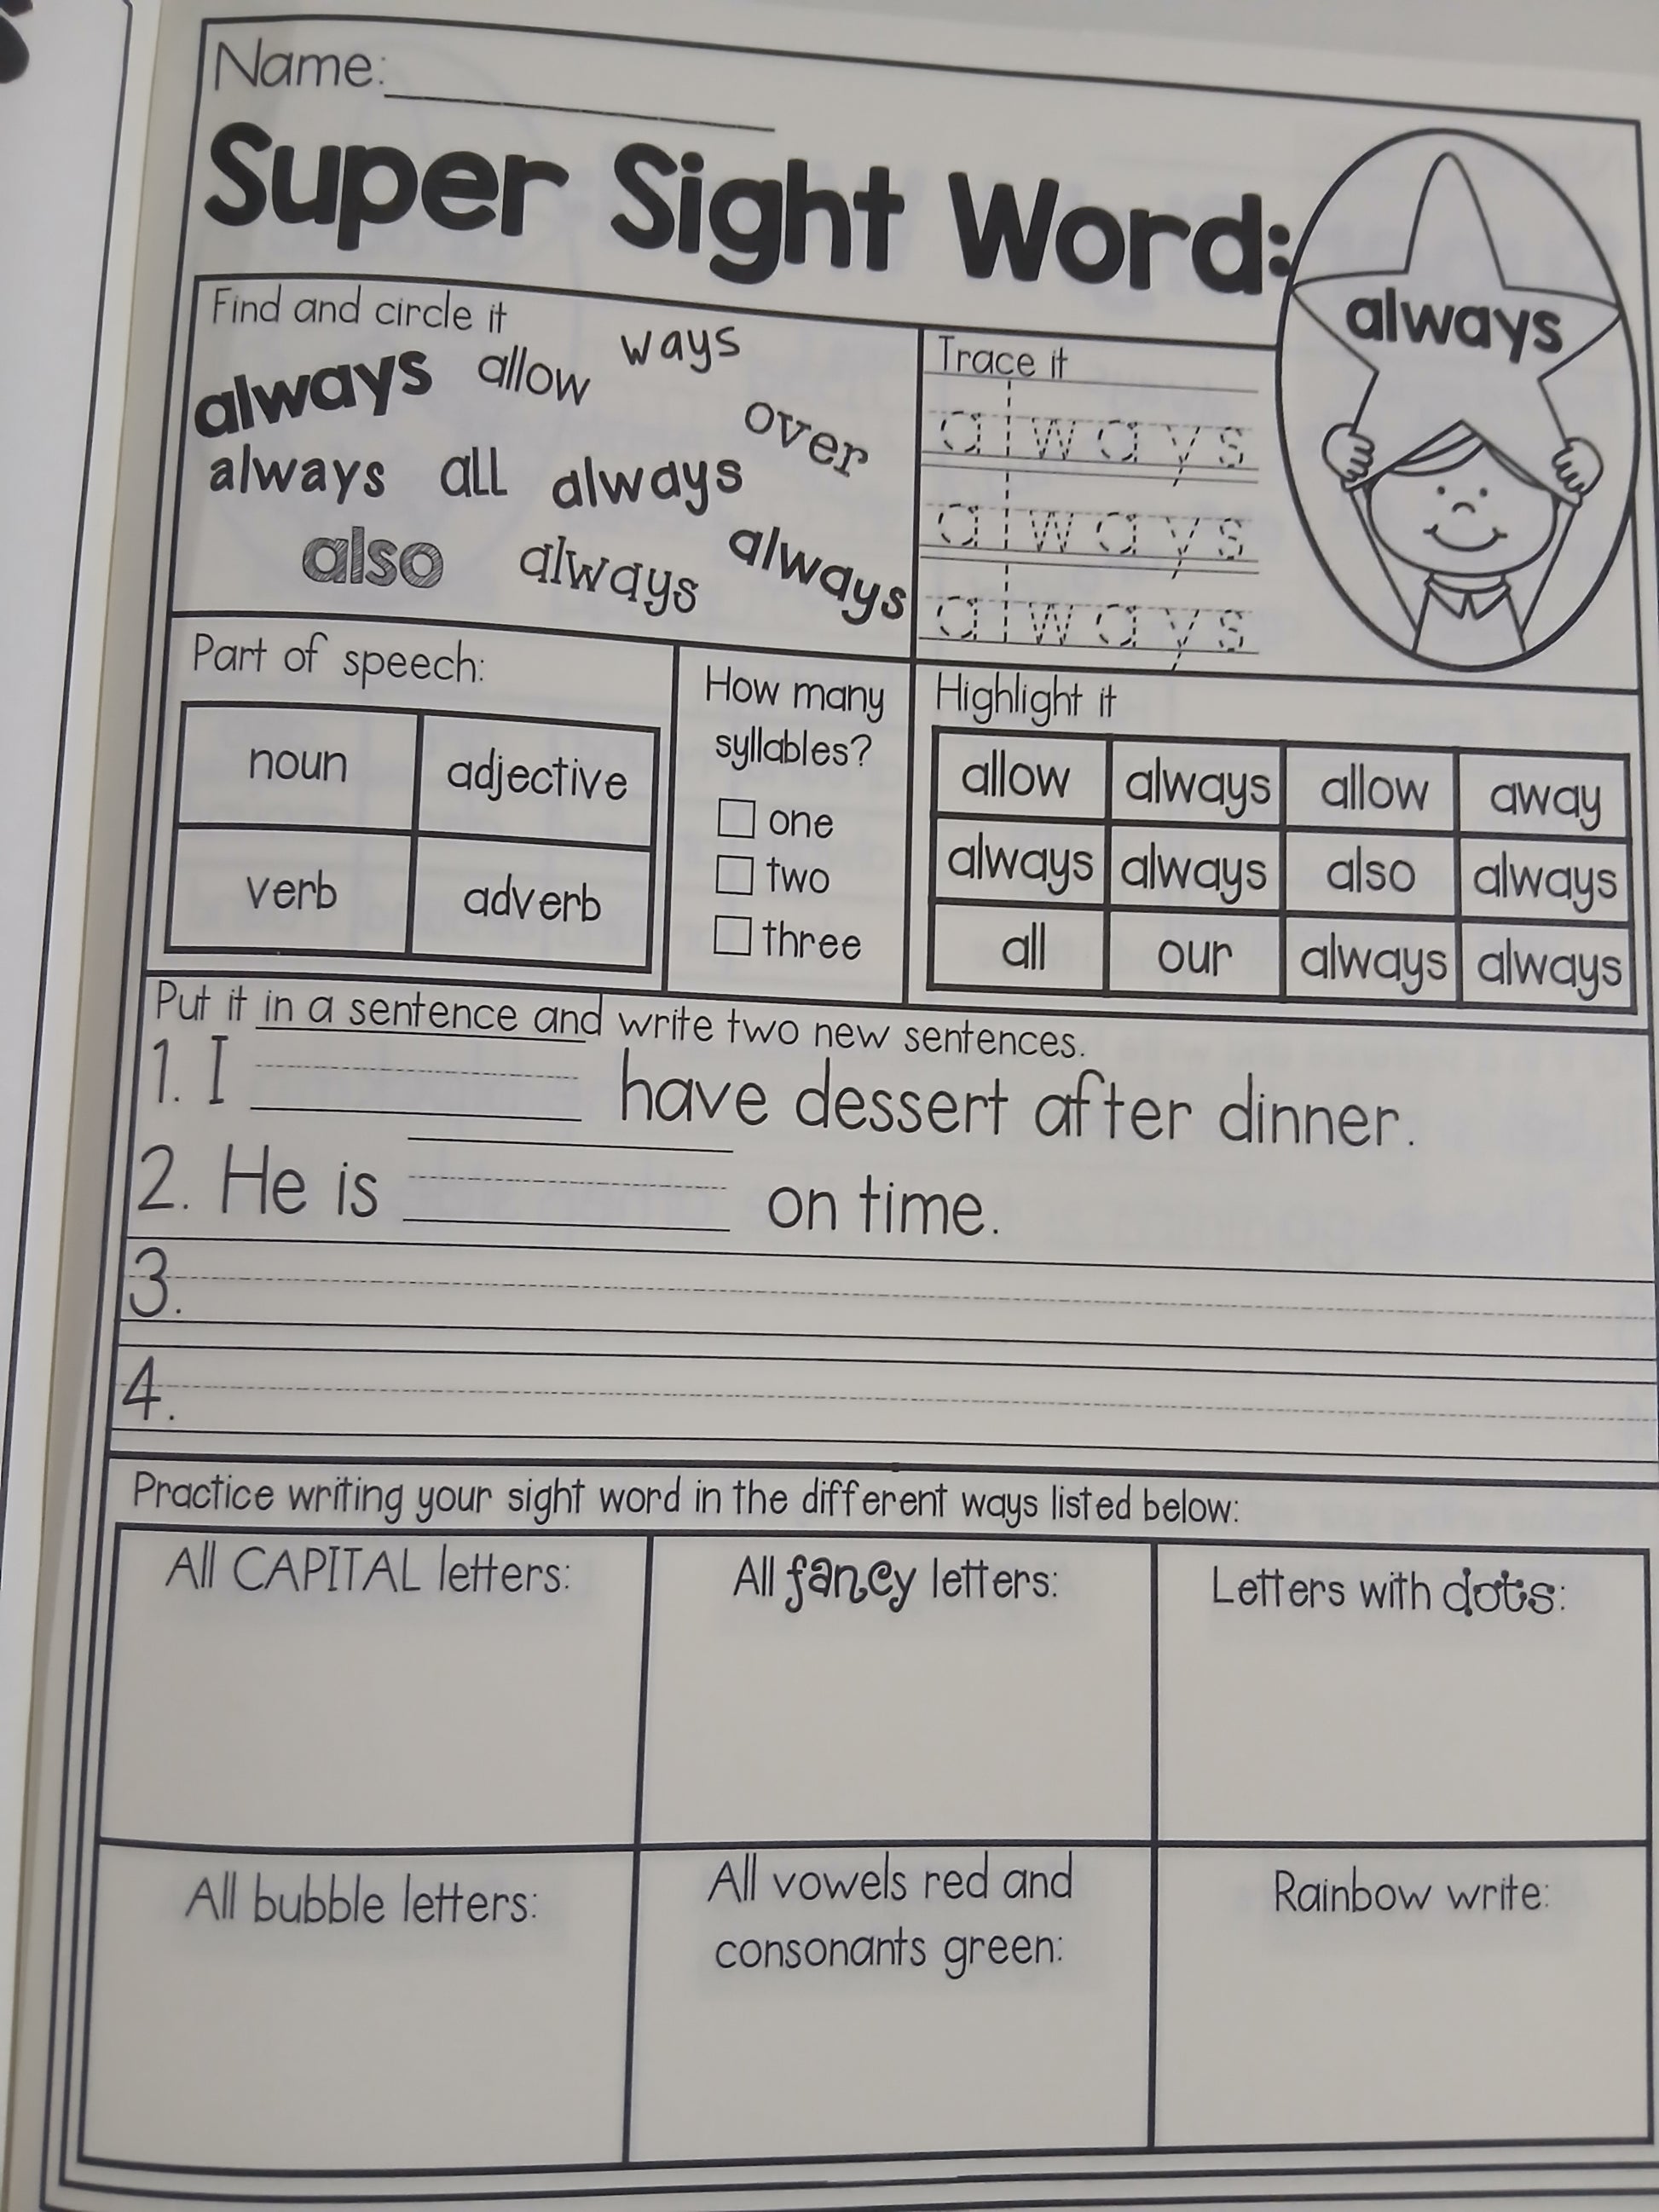 Name:
Super Sight Word:
always
Find and circle it
always allow ways
over
always all always
also always always
Trace it
always
always
always
Part of speech:
noun adjective
verb adverb
How many
syllables?
one
two
three
Highlight it
allow always allow away
always always also always
all our always always
Put it in a sentence and write two new sentences.
1. I have dessert after dinner.
2. He is on time.
3.
4.
Practice writing your sight word in the different ways listed below:
All CAPITAL letters:
All fancy letters:
Letters with dots:
All bubble letters:
All vowels red and
consonants green:
Rainbow write: